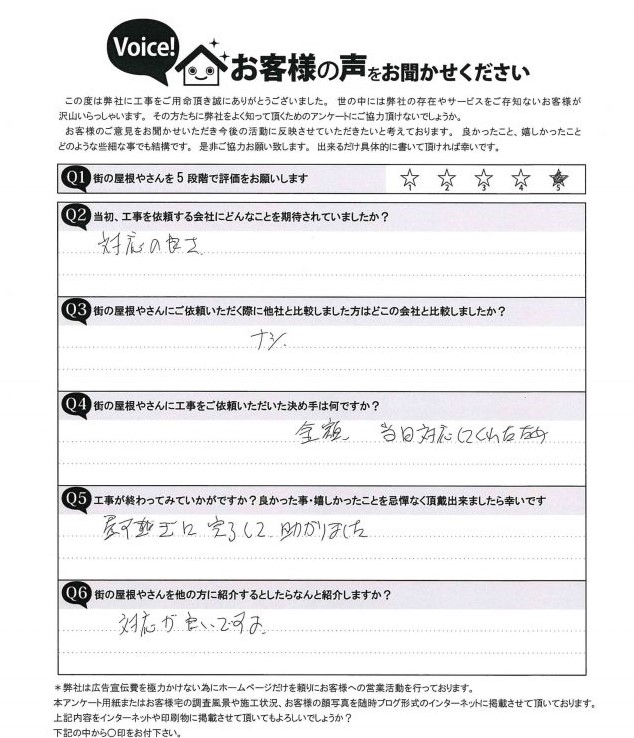 Voice!
お客様の声をお聞かせください
この度は弊社に工事をご用命頂き誠にありがとうございました。 世の中には弊社の存在やサービスをご存知ないお客様が
沢山いらっしゃいます。 その方たちに弊社をよく知って頂くためのアンケートにご協力頂けないでしょうか。
お客様のご意見をお聞かせいただき今後の活動に反映させていただきたいと考えております。 良かったこと、嬉しかったこと
どのような些細な事でも結構です。 是非ご協力お願い致します。 出来るだけ具体的に書いて頂ければ幸いです。
Q1 街の屋根やさんを5段階で評価をお願いします 1 2 3 4 5
Q2 当初、工事を依頼する会社にどんなことを期待されていましたか?
対応の良さ
Q3 街の屋根やさんにご依頼いただく際に他社と比較しました方はどこの会社と比較しましたか?
ナシ.
Q4 街の屋根やさんに工事をご依頼いただいた決め手は何ですか?
金額 当日対応してくれたため
Q5 工事が終わってみていかがですか?良かった事・嬉しかったことを忌憚なく頂戴出来ましたら幸いです
に完了して助かりました
Q6 街の屋根やさんを他の方に紹介するとしたらなんと紹介しますか?
対応が良いですよ
*弊社は広告宣伝費を極力かけない為にホームページだけを頼りにお客様への営業活動を行っております。
本アンケート用紙またはお客様宅の調査風景や施工状況、お客様の顔写真を随時ブログ形式のインターネットに掲載させて頂いております。
上記内容をインターネットや印刷物に掲載させて頂いてもよろしいでしょうか?
下記の中から○印をお付下さい。